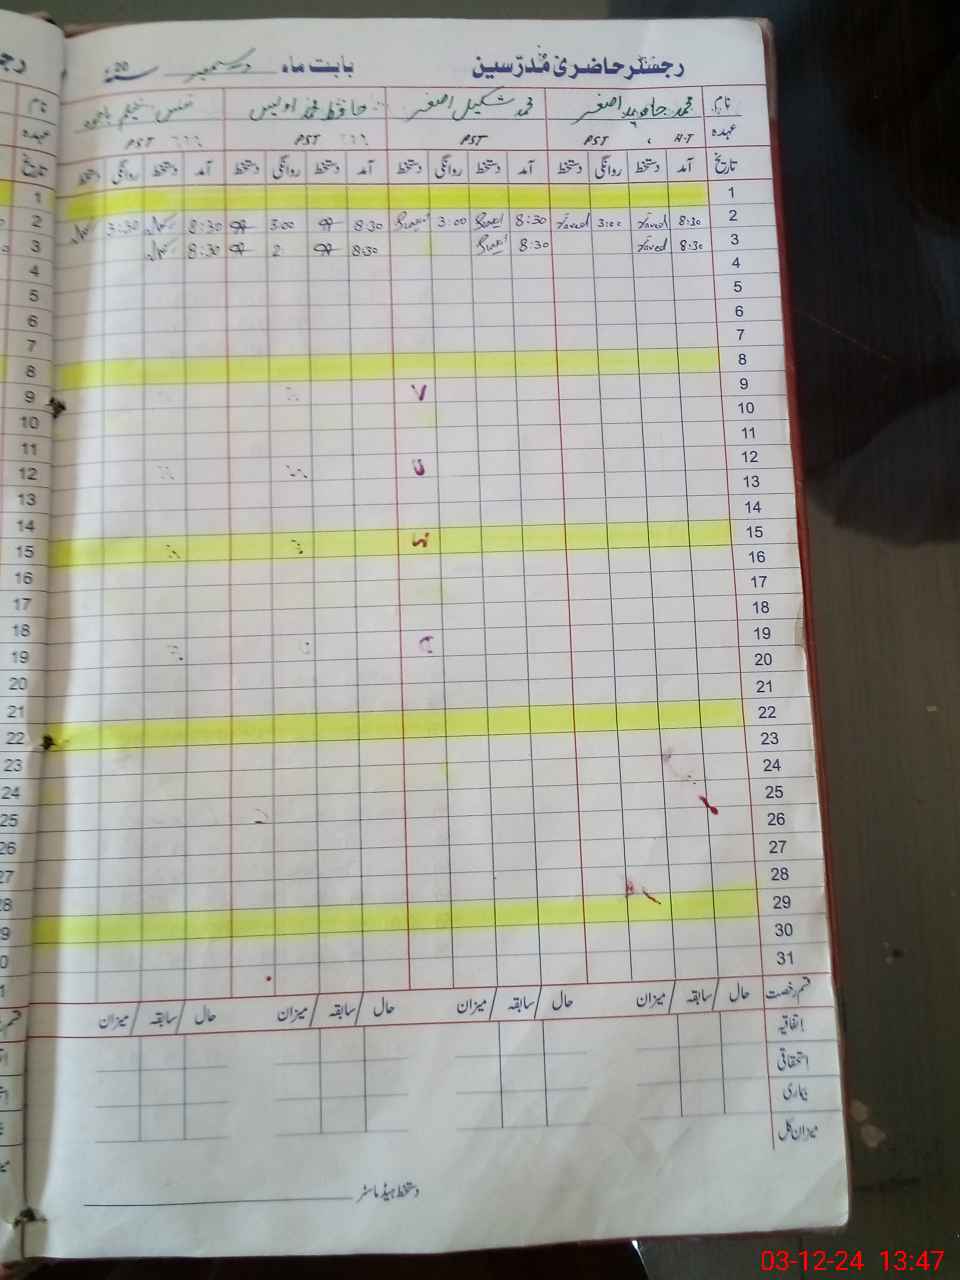 رجسٹر حاضری مدرسین بابت ماہ دسمبر سنہ 20ء
نام محمد جاوید اصغر محمد شکیل اصغر حافظ محمد اویس
عہدہ H-T PST PST PST PST
تاریخ آمد دستخط روانگی دستخط آمد دستخط روانگی دستخط آمد دستخط روانگی دستخط آمد دستخط روانگی دستخط
1 1
2 8:30 Javed 3:00 Javed 8:30 3:00 8:30 3:00 8:30 3:30 2
3 8:30 Javed 8:30 8:30 2 8:30 3
4 4
5 5
6 6
7 7
8 8
9 9
10 10
11 11
12 12
13 13
14 14
15 15
16 16
17 17
18 18
19 19
20 20
21 21
22 22
23 23
24 24
25 25
26 26
27 27
28 28
29 29
30 30
31
قسم رخصت حال / سابقہ / میزان حال / سابقہ / میزان حال / سابقہ / میزان حال / سابقہ / میزان
اتفاقیہ
استحقاقی
بیماری
میزان کل
دستخط ہیڈ ماسٹر
03-12-24 13:47